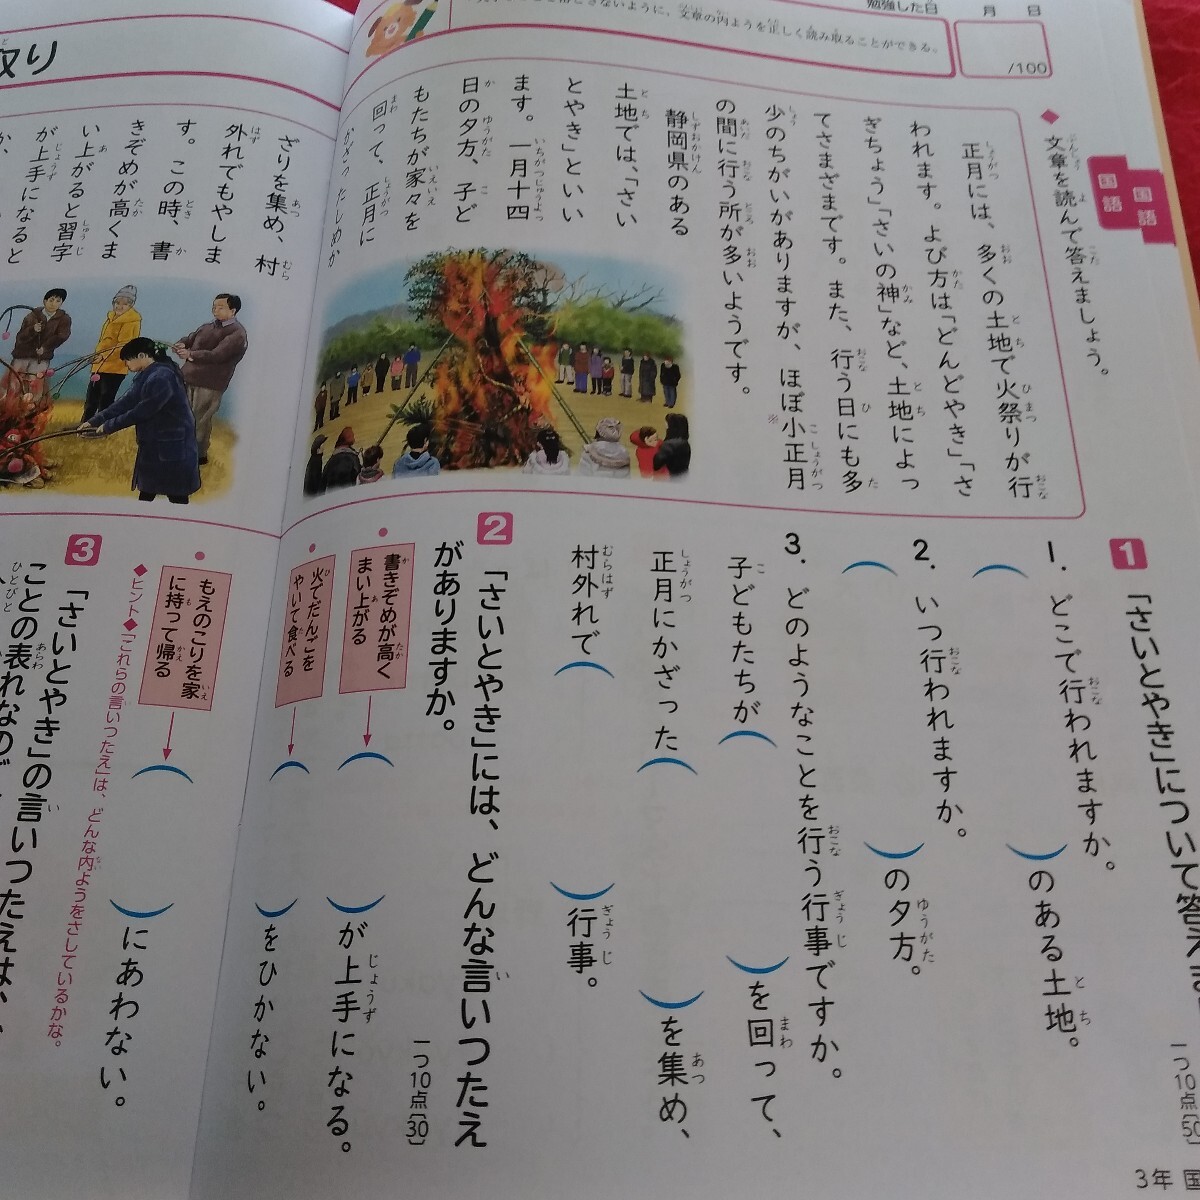 勉強した日　月　日
/100
文章の内ようを正しく読み取ることができる。
取り
国語
国語
◆文章を読んで答えましょう。
正月には、多くの土地で火祭りが行
われます。よび方は「どんどやき」「さ
ぎちょう」「さいの神」など、土地によっ
てさまざまです。また、行う日にも多
少のちがいがありますが、ほぼ※小正月
の間に行う所が多いようです。
静岡県のある
土地では、「さい
とやき」といい
ます。一月十四
日の夕方、子ど
もたちが家々を
回って、正月に
かざったしめか
ざりを集め、村
外れでもやしま
す。この時、書
きぞめが高くま
い上がると習字
が上手になると
1 「さいとやき」について答えま
一つ10点〔50
1. どこで行われますか。
（　）のある土地。
2. いつ行われますか。
（　）の夕方。
3. どのようなことを行う行事ですか。
子どもたちが（　）を回って、
正月にかざった（　）を集め、
村外れで（　）行事。
2 「さいとやき」には、どんな言いつたえ
がありますか。
一つ10点〔30〕
・書きぞめが高く
まい上がる
（　）が上手になる。
・火でだんごを
やいて食べる
（　）をひかない。
・もえのこりを家
に持って帰る
（　）にあわない。
◆ヒント◆「これらの言いつたえ」は、どんな内ようをさしているかな。
3 「さいとやき」の言いつたえは、
ことの表れなので
3年 国